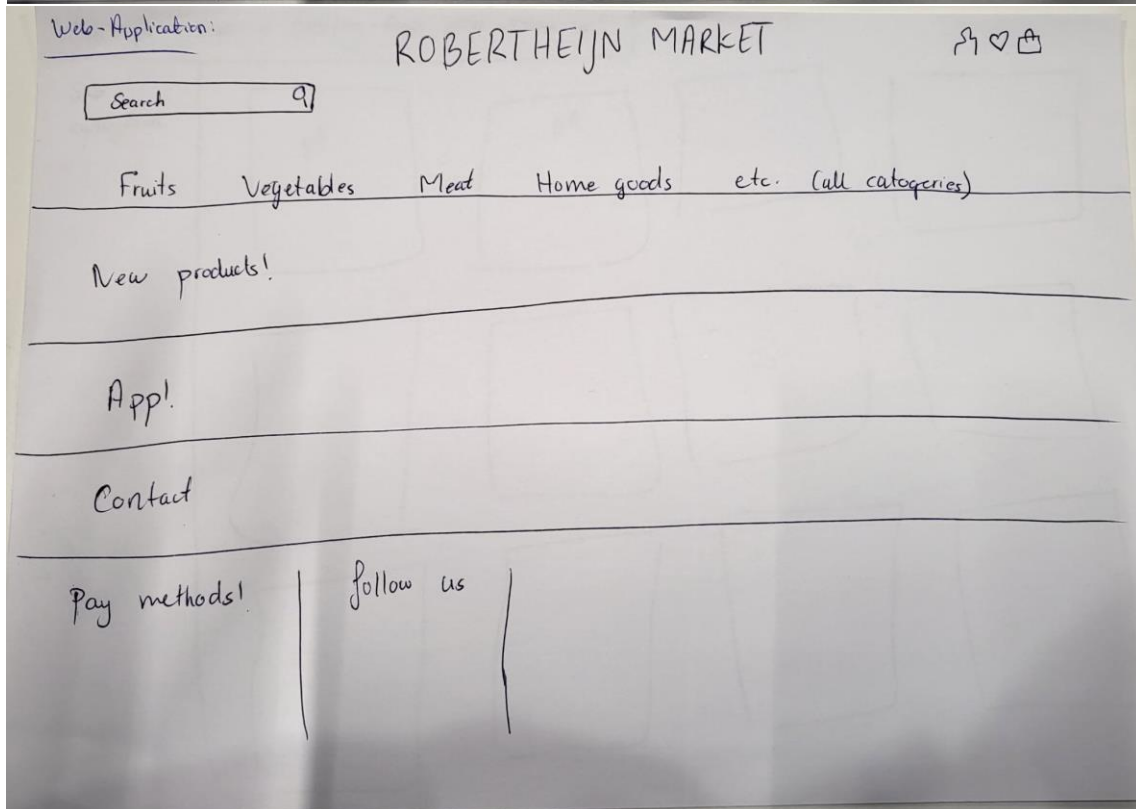 Web-Application:
ROBERTHEIJN MARKET
Search
Fruits Vegetables Meat Home goods etc. (all catogeries)
New products!
App!
Contact
Pay methods!
follow us